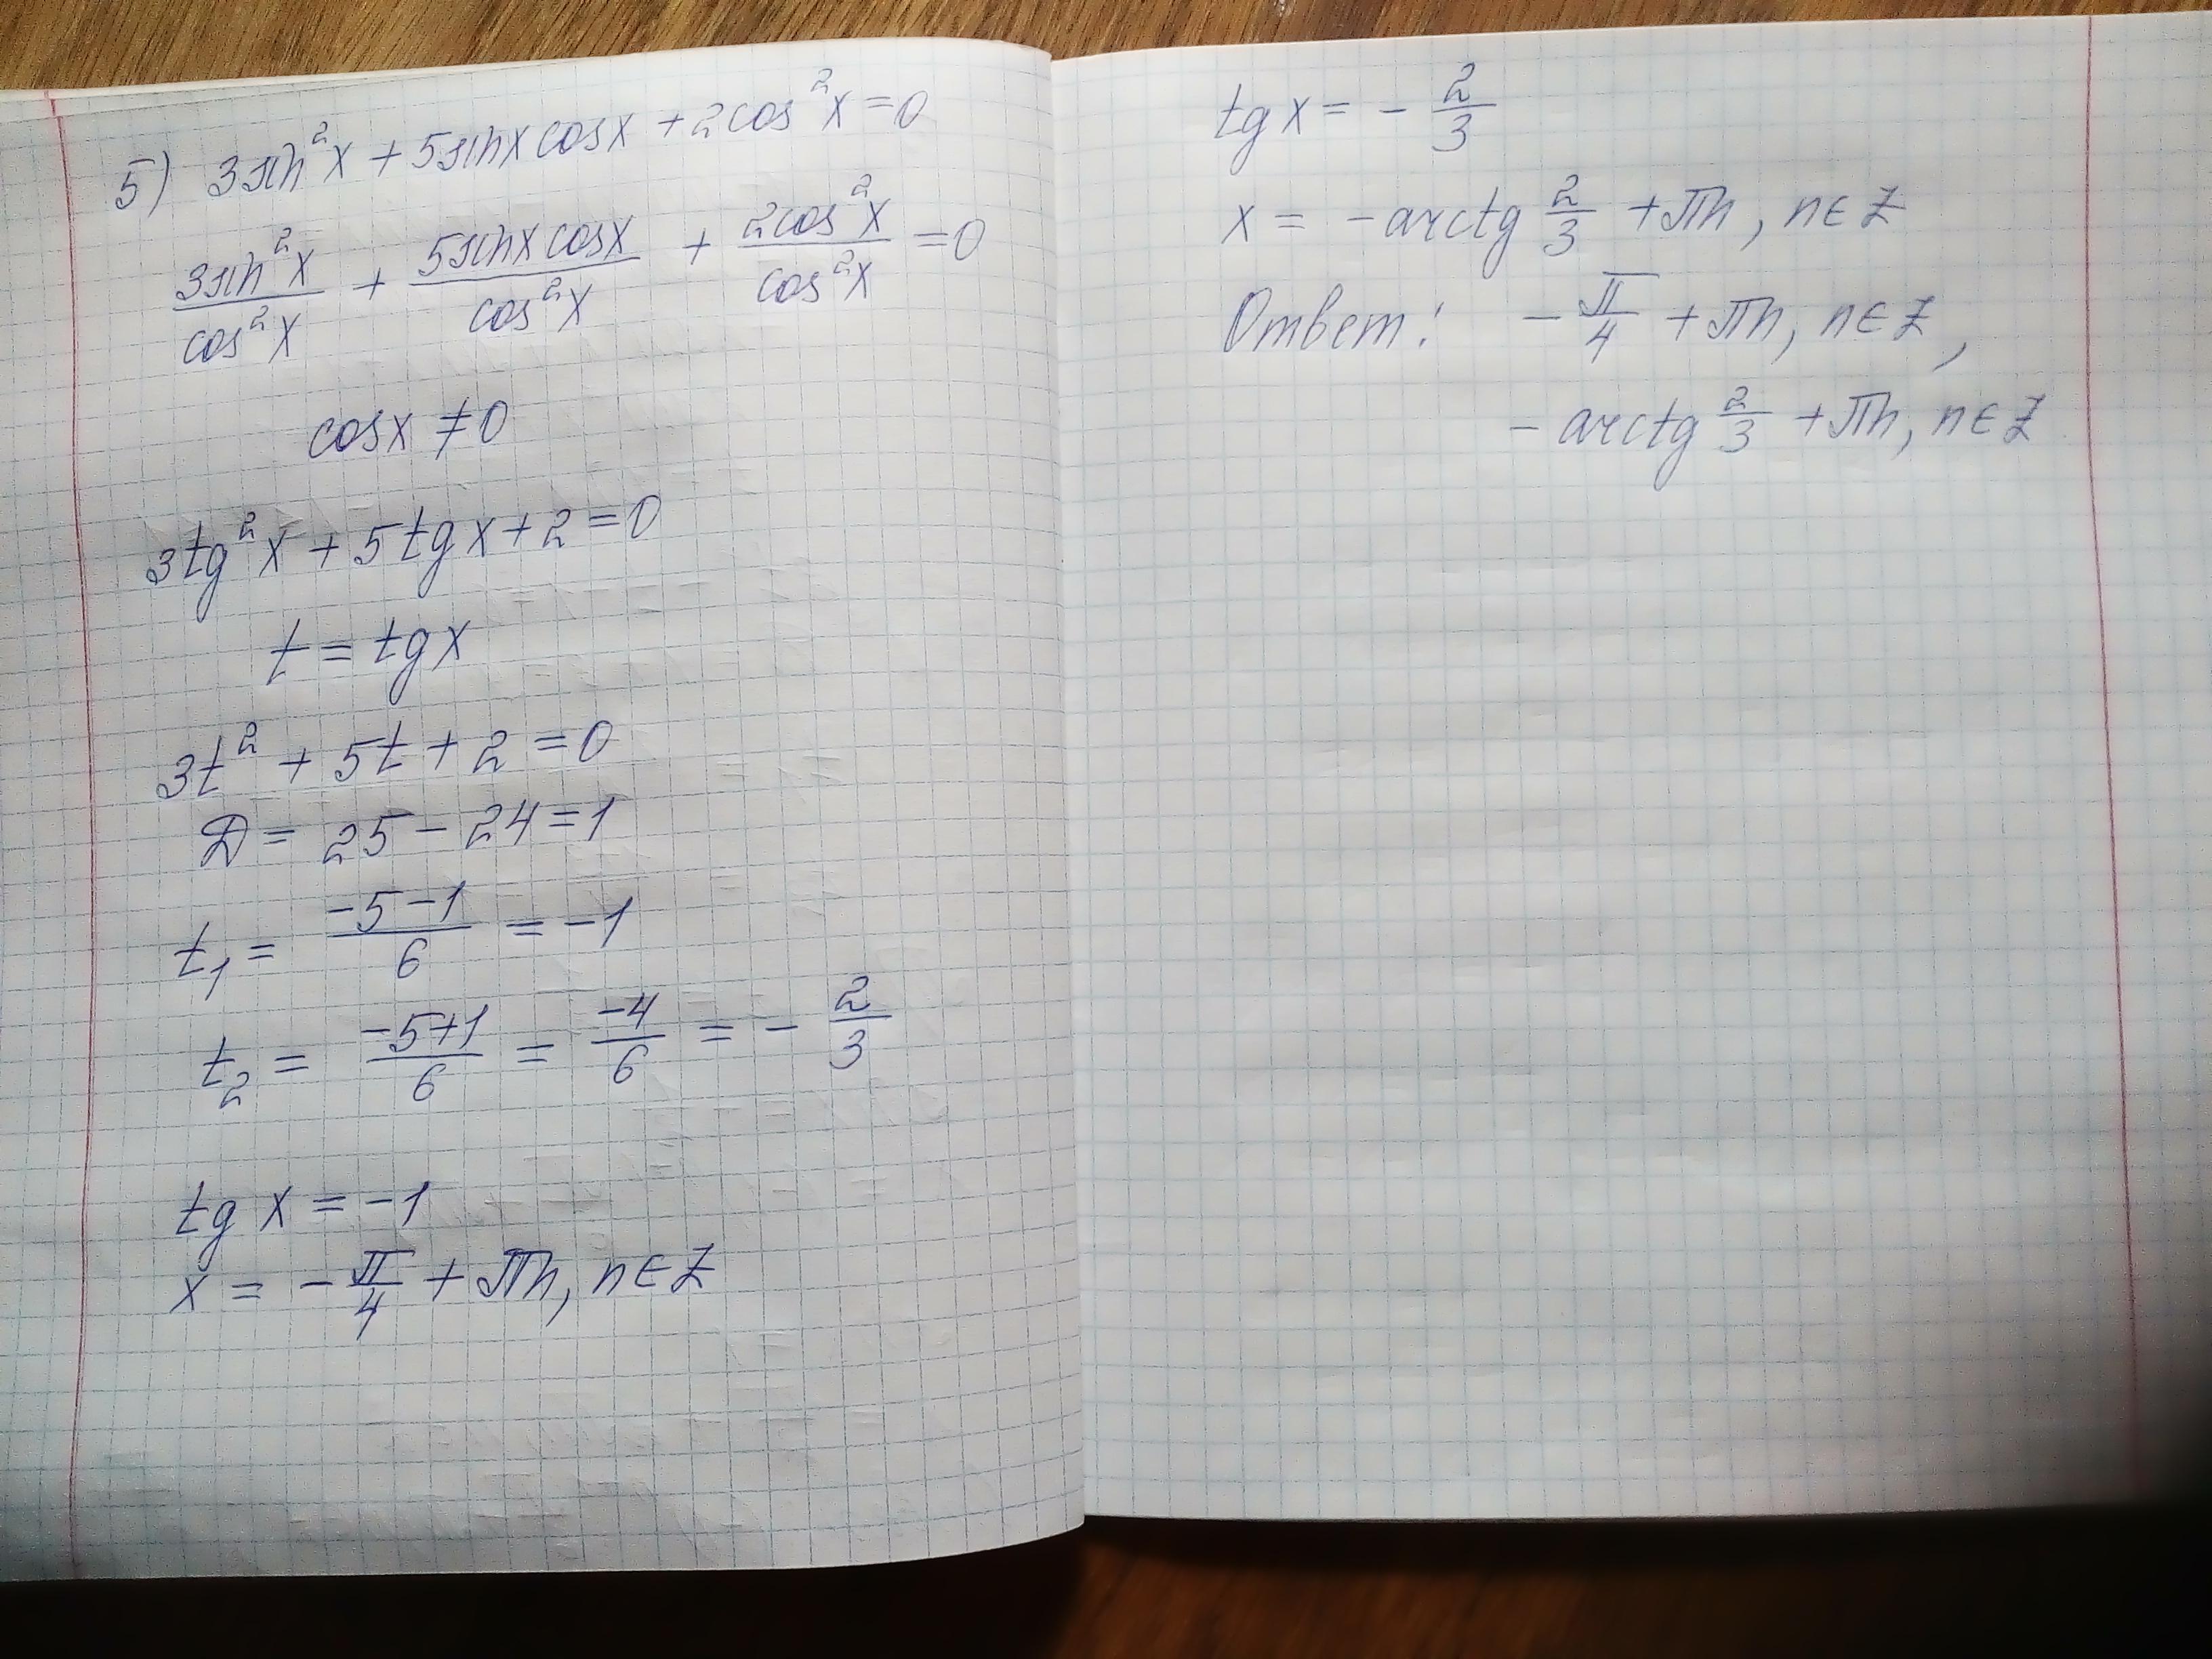 5) 3sin²x + 5sinx cosx + 2cos²x = 0
3sin²x/cos²x + 5sinx cosx/cos²x + 2cos²x/cos²x = 0
cosx ≠ 0
3tg²x + 5tgx + 2 = 0
t = tgx
3t² + 5t + 2 = 0
D = 25 - 24 = 1
t₁ = (-5-1)/6 = -1
t₂ = (-5+1)/6 = -4/6 = -2/3
tg x = -1
x = -π/4 + πn, n∈Z
tg x = -2/3
x = -arctg 2/3 + πn, n∈Z
Ответ: -π/4 + πn, n∈Z,
-arctg 2/3 + πn, n∈Z